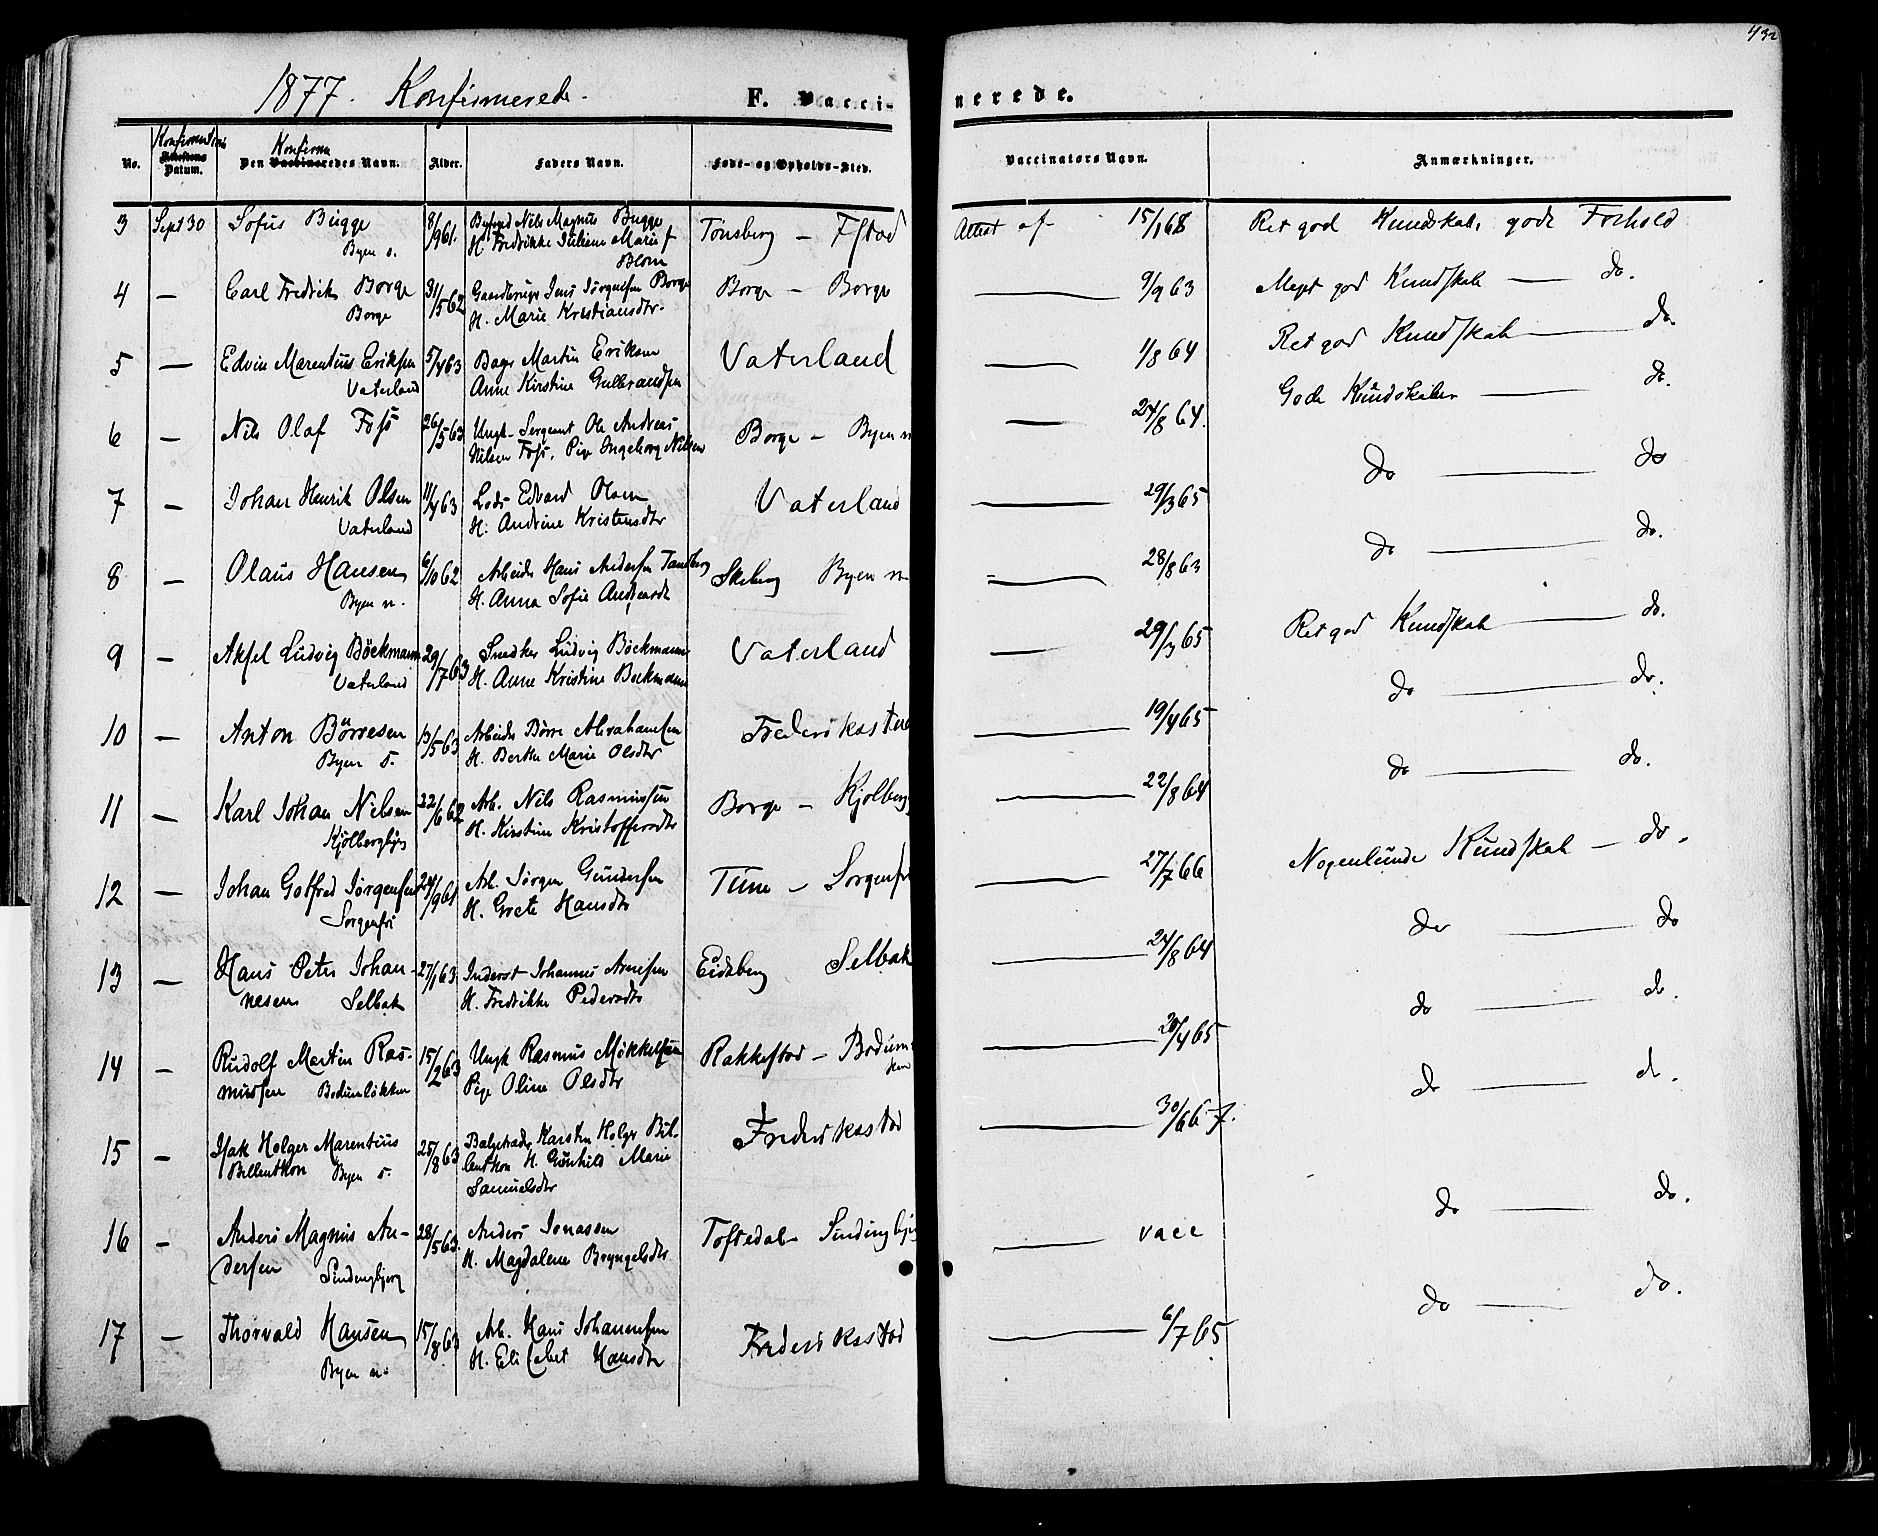 432
1877. Konfirmerede.
F. Vacci-
nerede.
No.
Konfirmations
Attestens Datum.
Konfirme
Den Vaccineredes Navn.
Alder.
Faders Navn.
Føde- og Opholds-Sted.
Vaccinators Navn.
Anmærkninger.
3 Sept 30 Sofus Bugge 8/9 61. Nils Magnus Bugge Tønsberg — Fstad Attest af 15/1 68 Ret god Kundskab, gode Forhold
Byen s. H. Fredrikke Juliane Marie f
Blom
4 — Carl Fredrik Borge 31/5 62 Gaardbruger Jens Jørgensen Borge Borge — Borge — 9/9 63 Meget god Kundskab — do.
Borge H. Marie Kristiansdtr.
5 — Edvin Marentius Eriksen 5/4 63 Bager Martin Eriksen Vaterland — 1/8 64 Ret god Kundskab — do.
Vaterland Anne Kirstine Gulbrandsen
6 — Nils Olaf Foss 26/5 63 Ungk. Sergeant Ole Andreas Borge — Byen n — 24/8 64. Gode Kundskaber — do.
Nilsen Foss, Pige Ingeborg Nilsen
7 — Johan Henrik Olsen 11/4 63 Lods Edvard Olsen Vaterland — 29/3 65 do — do
Vaterland H. Andrine Kristensdtr
8 — Olaus Hansen 6/10 62 Arbeider Hans Andersen Tandberg Skeberg Byen n — 28/8 63 do — do.
Byen n. H. Anna Sofie
9 — Aksel Ludvig Böckmann 29/7 63 Snedker Ludvig Böckmann Vaterland — 29/3 65 Ret god Kundskab — do.
Vaterland H. Anne Kristine Bockmann
10 — Anton Börresen 13/5 63 Arbeider Börre Abrahamsen Frederikstad — 19/4 65 do — do.
Byen s. H. Berthe Marie Olsdtr
11 — Karl Johan Nilsen 22/6 62 Arb. Nils Rasmussen Borge — Kjölberg — 22/8 64 do — do.
Kjölbergbjerg H. Kirstine Kristoffersdtr
12 — Johan Gotfred Jørgensen 24/9 61 Arb. Jörgen Gundersen Tune — Sorgenfri — 27/7 66 Nogenlunde Kundskab — do.
Sorgenfri H. Grete Hansdtr
13 — Hans Peter Johan- 27/1 63 Inderst Johannes Arnesen Eidsberg Selbak — 24/8 64 do — do
nesen Selbak H. Fredrikke Pedersdtr
14 — Rudolf Martin Ras- 15/2 63 Ungk Rasmus Mikkelsen Rakkestad — Bodum- — 20/4 65 do — do.
mussen Bodumløkken Pige Oline Olsdtr
15 — Isak Holger Marentius 25/8 63 Karsten Holger Bil- Frederikstad — 30/6 67. do — do.
Billentkon Byen s. lentkon H. Gunhild Marie
Samuelsdtr
16 — Anders Magnus An- 28/5 63. Anders Jonassen Toftedal — vacc do — do.
dersen H. Magdalene Bryngelsdtr
17 — Thorvald Hansen 15/8 63 Arb. Hans Johannesen Frederikstad — 6/7 65 do — do.
Byen n. H. Elisabet Hansdtr